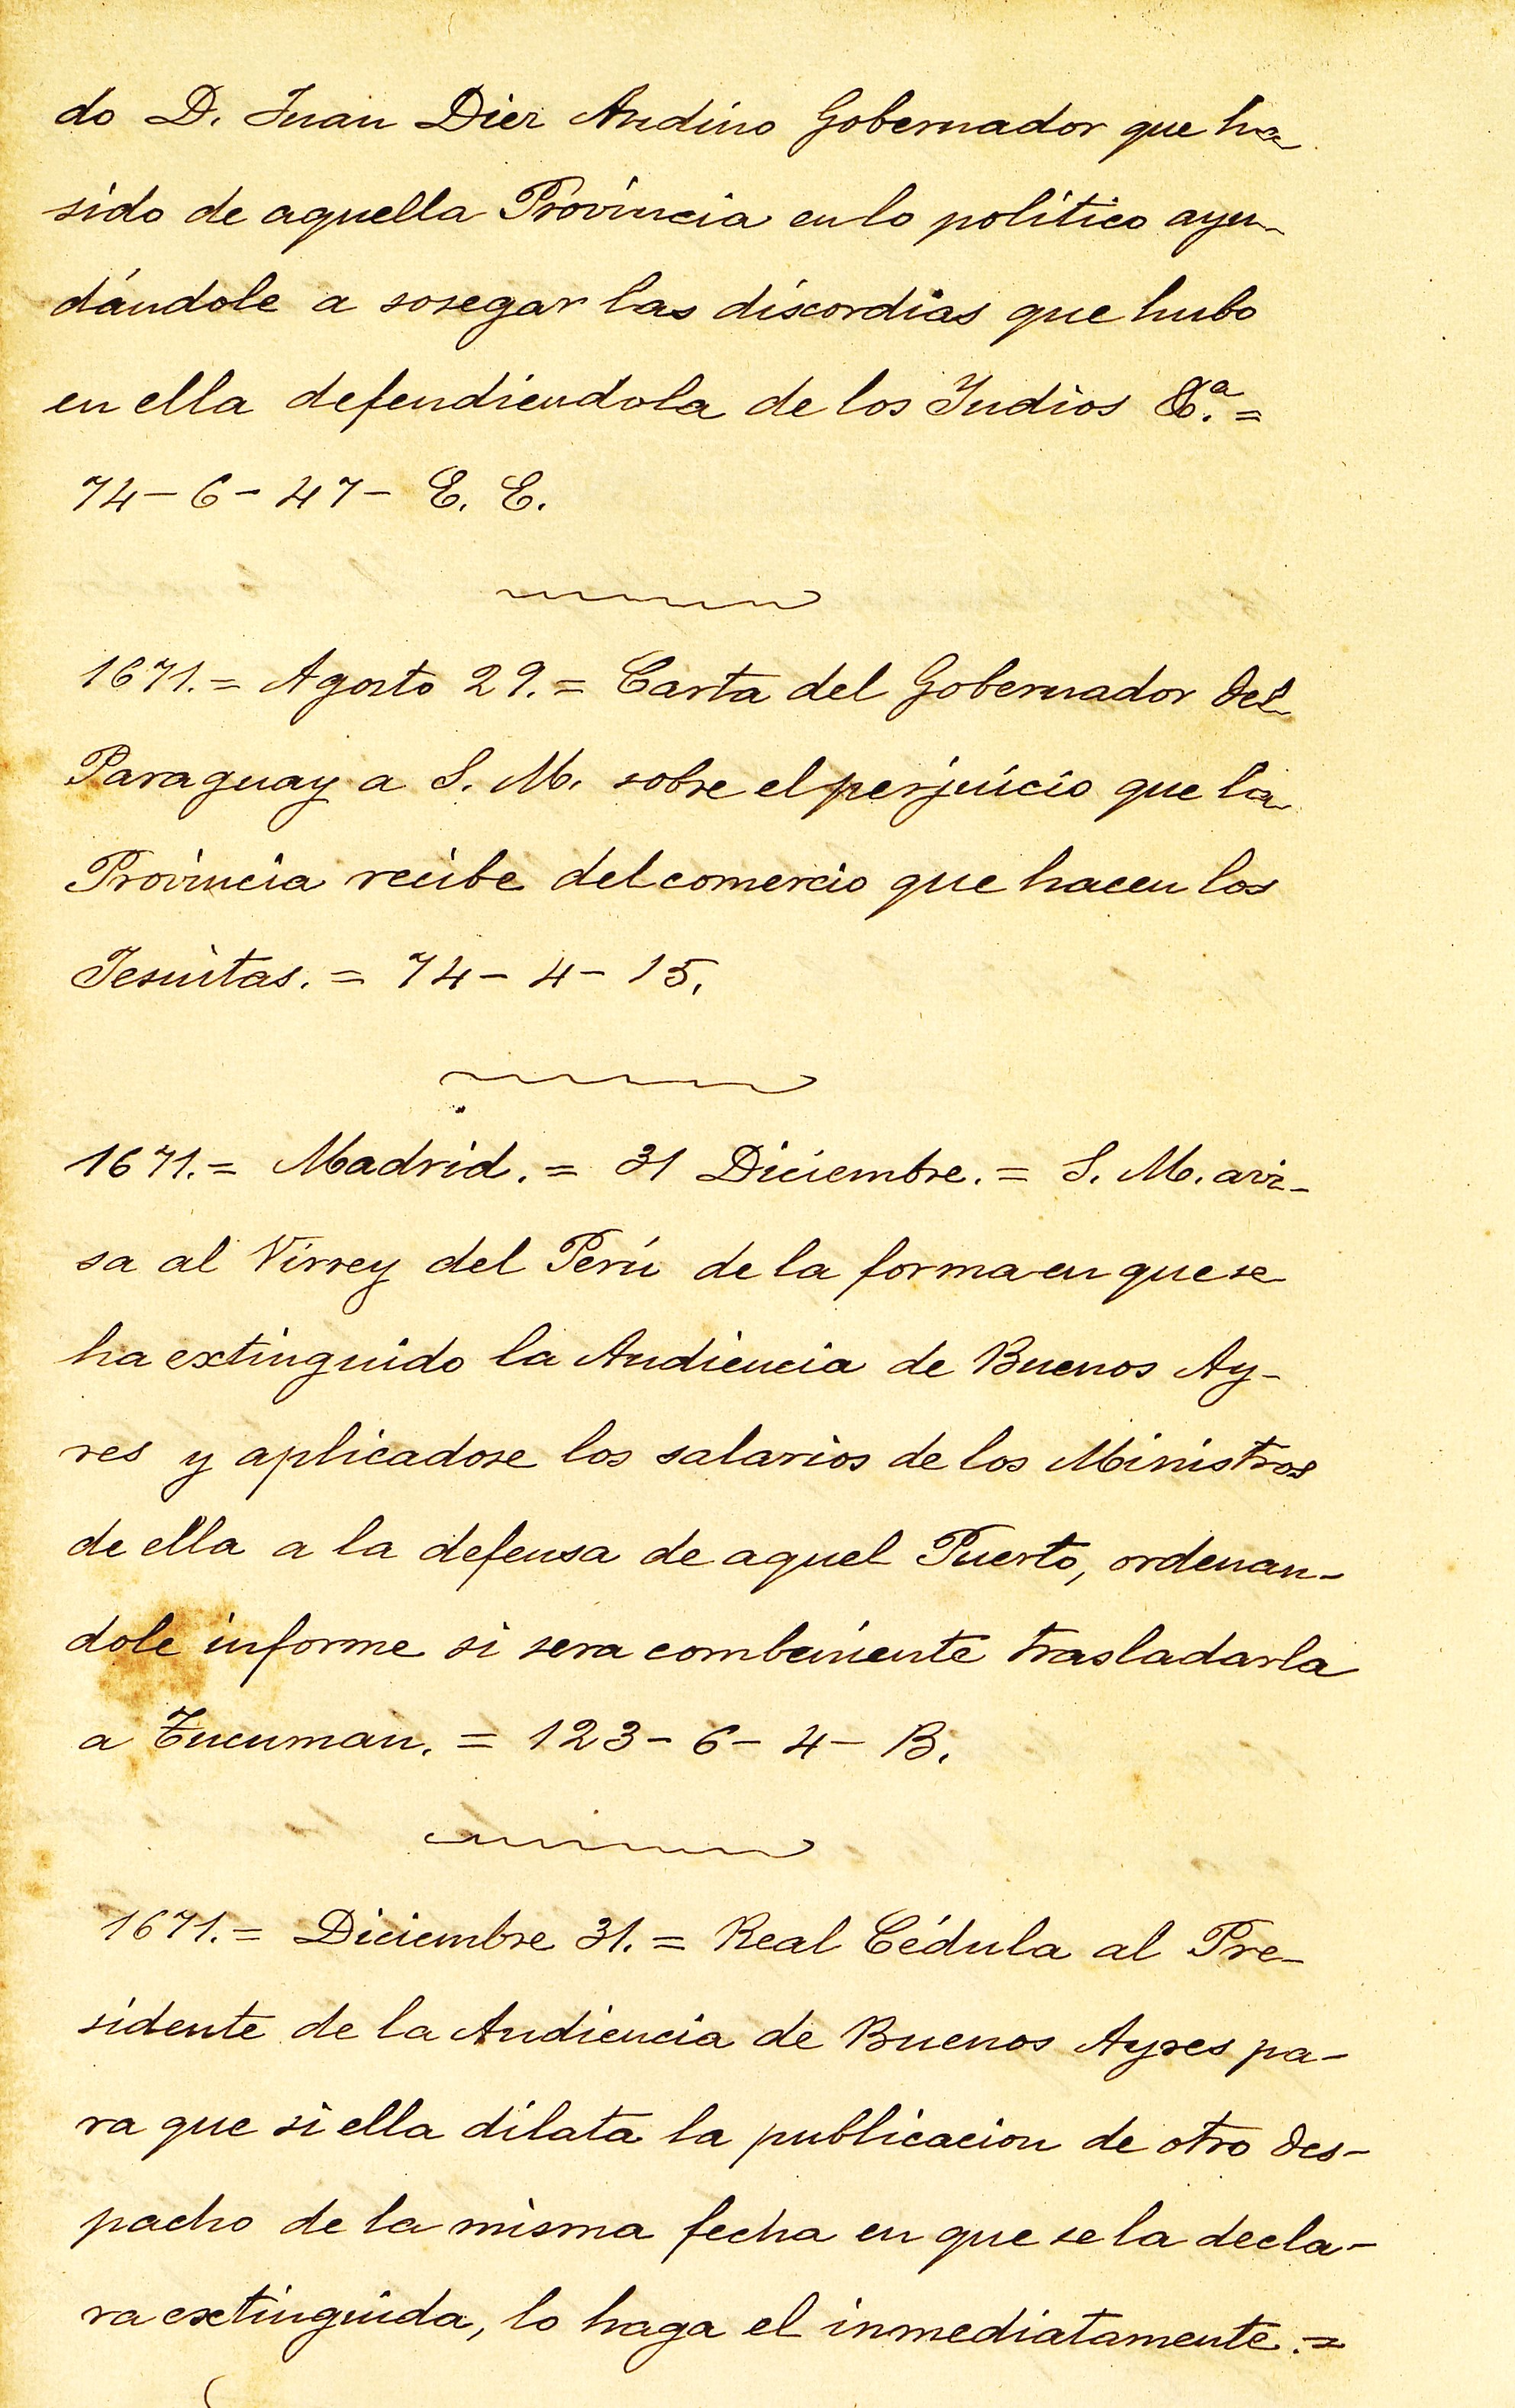 do D. Juan Diez Andino Gobernador que ha
sido de aquella Provincia en lo politico ayu-
dándole a sosegar las discordias que hubo
en ella defendiendola de los Indios &.ª =
74 - 6 - 47 - E. E.
1671. = Agosto 29. = Carta del Gobernador del
Paraguay a S. M. sobre el perjuicio que la
Provincia recibe del comercio que hacen los
Jesuitas. = 74 - 4 - 15.
1671. = Madrid. = 31 Diciembre. = S. M. avi-
sa al Virrey del Perú de la forma en que se
ha extinguido la Audiencia de Buenos Ay-
res y aplicadose los salarios de los Ministros
de ella a la defensa de aquel Puerto, ordenan-
dole informe si sera combeniente trasladarla
a Tucuman. = 123 - 6 - 4 - B.
1671. = Diciembre 31. = Real Cédula al Pre-
sidente de la Audiencia de Buenos Ayres pa-
ra que si ella dilata la publicacion de otro des-
pacho de la misma fecha en que se la decla-
ra extinguida, lo haga el inmediatamente. =